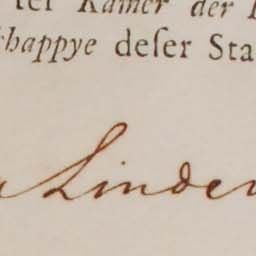 ter Kamer der
schappye deser Sta
Linden